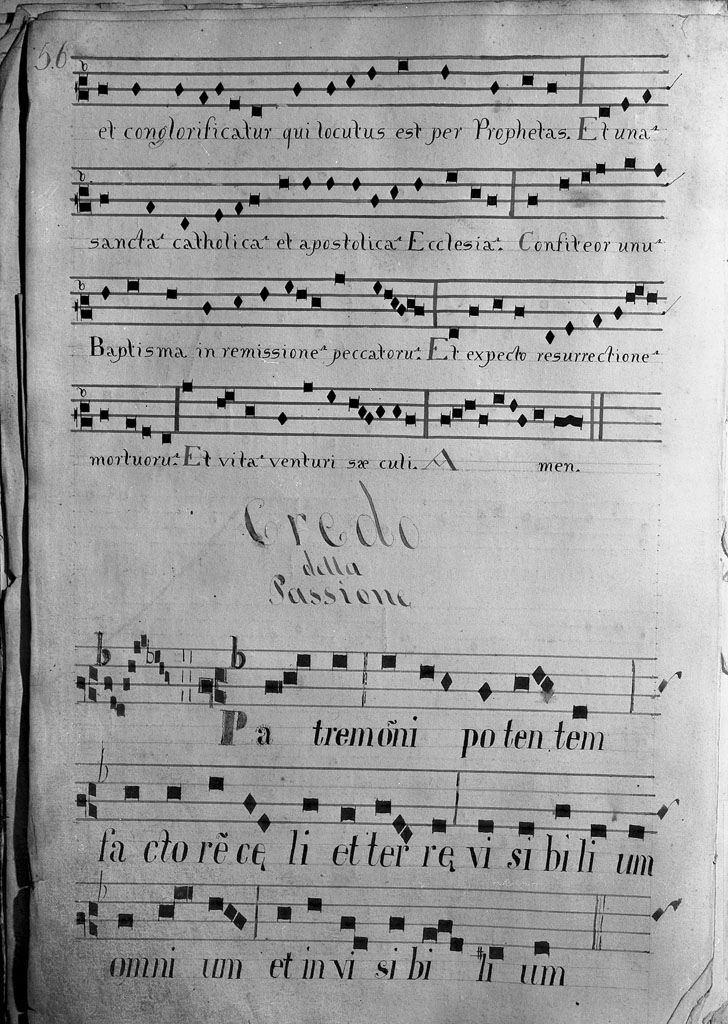 56
et conglorificatur qui locutus est per Prophetas. Et unaᵃ
sanctaᵃ catholicaᵃ et apostolicaᵃ Ecclesiaᵃ. Confiteor unuᵃ
Baptisma in remissioneᵃ peccatoruᵃ. Et expecto resurrectioneᵃ
mortuoruᵃ. Et vitaᵃ venturi sæ culi. A men.
Credo
della
Passione
Pa tremom̃ni po ten tem
fa cto rẽ cę li et ter rę vi si bi li um
omni um et in vi si bi li um